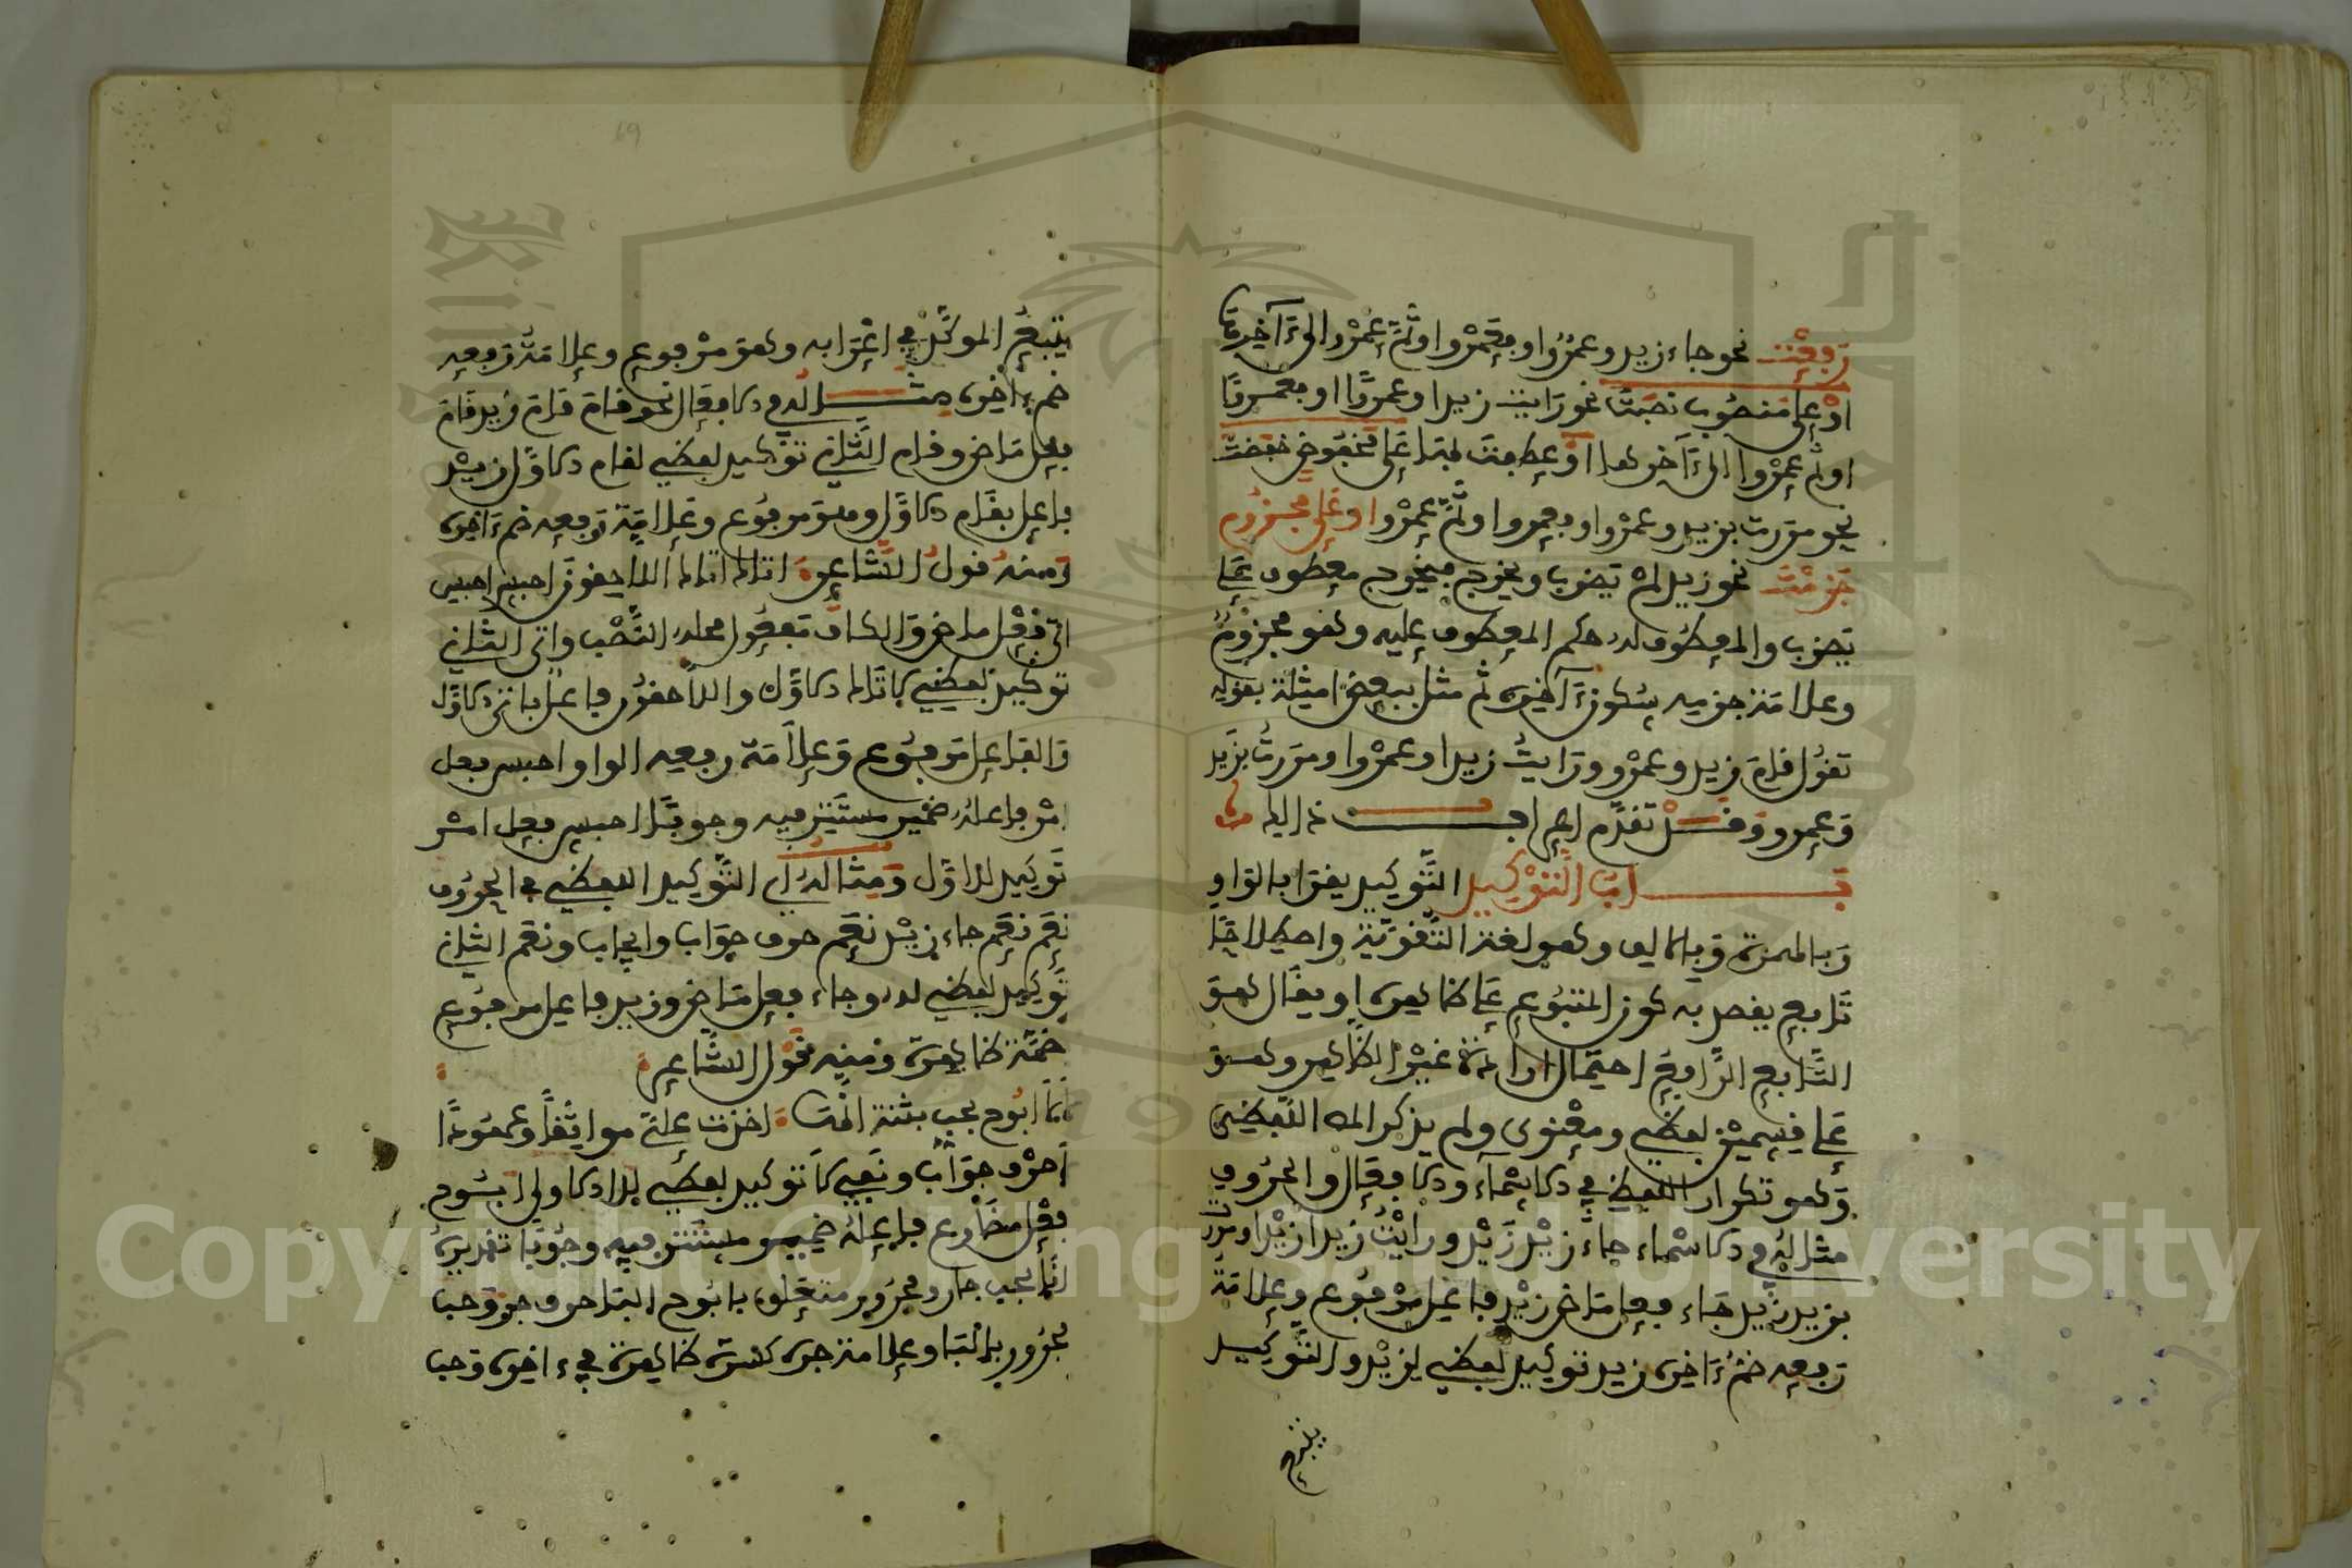 رفعت نحو جاء زيد وعمرو او فعمرو او ثم عمرو الى ءاخرها
او على منصوب نصبت نحو رايت زيدا وعمرًا او فعمرًا
او ثم عمروا الى ءاخرها او عطفت بها على مخفوض خفضت
نحو مررت بزيد وعمرو او فعمرو او ثم عمرو او على مجزوم
جزمت نحو زيد لم يضرب ويخرج فيخرج معطوف على
يضرب والمعطوف له حكم المعطوف عليه وهو مجزوم
وعلامة جزمه سكون ءاخره ثم مثل ببعض امثلة بقوله
تقول قام زيد وعمرو ورايت زيدا وعمروا ومررت بزيد
وعمرو وقد تقدم
باب التوكيد التوكيد يقرا بالواو
وبالهمزة وبالالف وهو لغة التقوية واصطلاحا
تابع يقصد به كون المتبوع على ظاهره او يقال هو
التابع الرافع احتمال ارادة غير الظاهر وهو
على قسمين لفظي ومعنوي ولم يذكر اللفظي
وهو تكرار اللفظ في الاسماء والافعال والحروف
مثاله في الاسماء جاء زيد زيد ورايت زيدا زيدا ومررت
بزيد زيد جاء فعل ماض زيد فاعل مرفوع وعلامة
رفعه ضم ءاخره زيد توكيد لفظي لزيد والتوكيد
يتبع
يتبع الموكد في اعرابه وهو مرفوع وعلامة رفعه
ضم ءاخره مثاله في الافعال نحو قام قام زيد قام
فعل ماض وقام الثاني توكيد لفظي لقام الاول زيد
فاعل بقام الاول وهو مرفوع وعلامة رفعه ضم ءاخره
ومنه قول الشاعر اتاك اتاك اللاحقون احبس احبس
اتى فعل ماض والكاف مفعول محله النصب واتى الثاني
توكيد لفظي لاتاك الاول واللاحقون فاعل باتى الاول
والفاعل مرفوع وعلامة رفعه الواو احبس فعل
امر فاعله ضمير مستتر فيه وجوبا احبس فعل امر
توكيد للاول ومثاله اي التوكيد اللفظي في الحروف
نعم نعم جاء زيد نعم حرف جواب وايجاب ونعم الثاني
توكيد لفظي له وجاء فعل ماض وزيد فاعل مرفوع
ضمة ظاهرة ومنه قول الشاعر
لا لا ابوح بحب بثنة انها اخذت علي مواثقا وعهودا
لا حرف جواب ونفي لا توكيد لفظي للا الاولى ابوح
فعل مضارع فاعله ضمير مستتر فيه وجوبا تقديره
انا بحب جار ومجرور متعلق بابوح الباء حرف جر وحب
مجرور بالباء وعلامة جره كسرة ظاهرة في ءاخره وحب